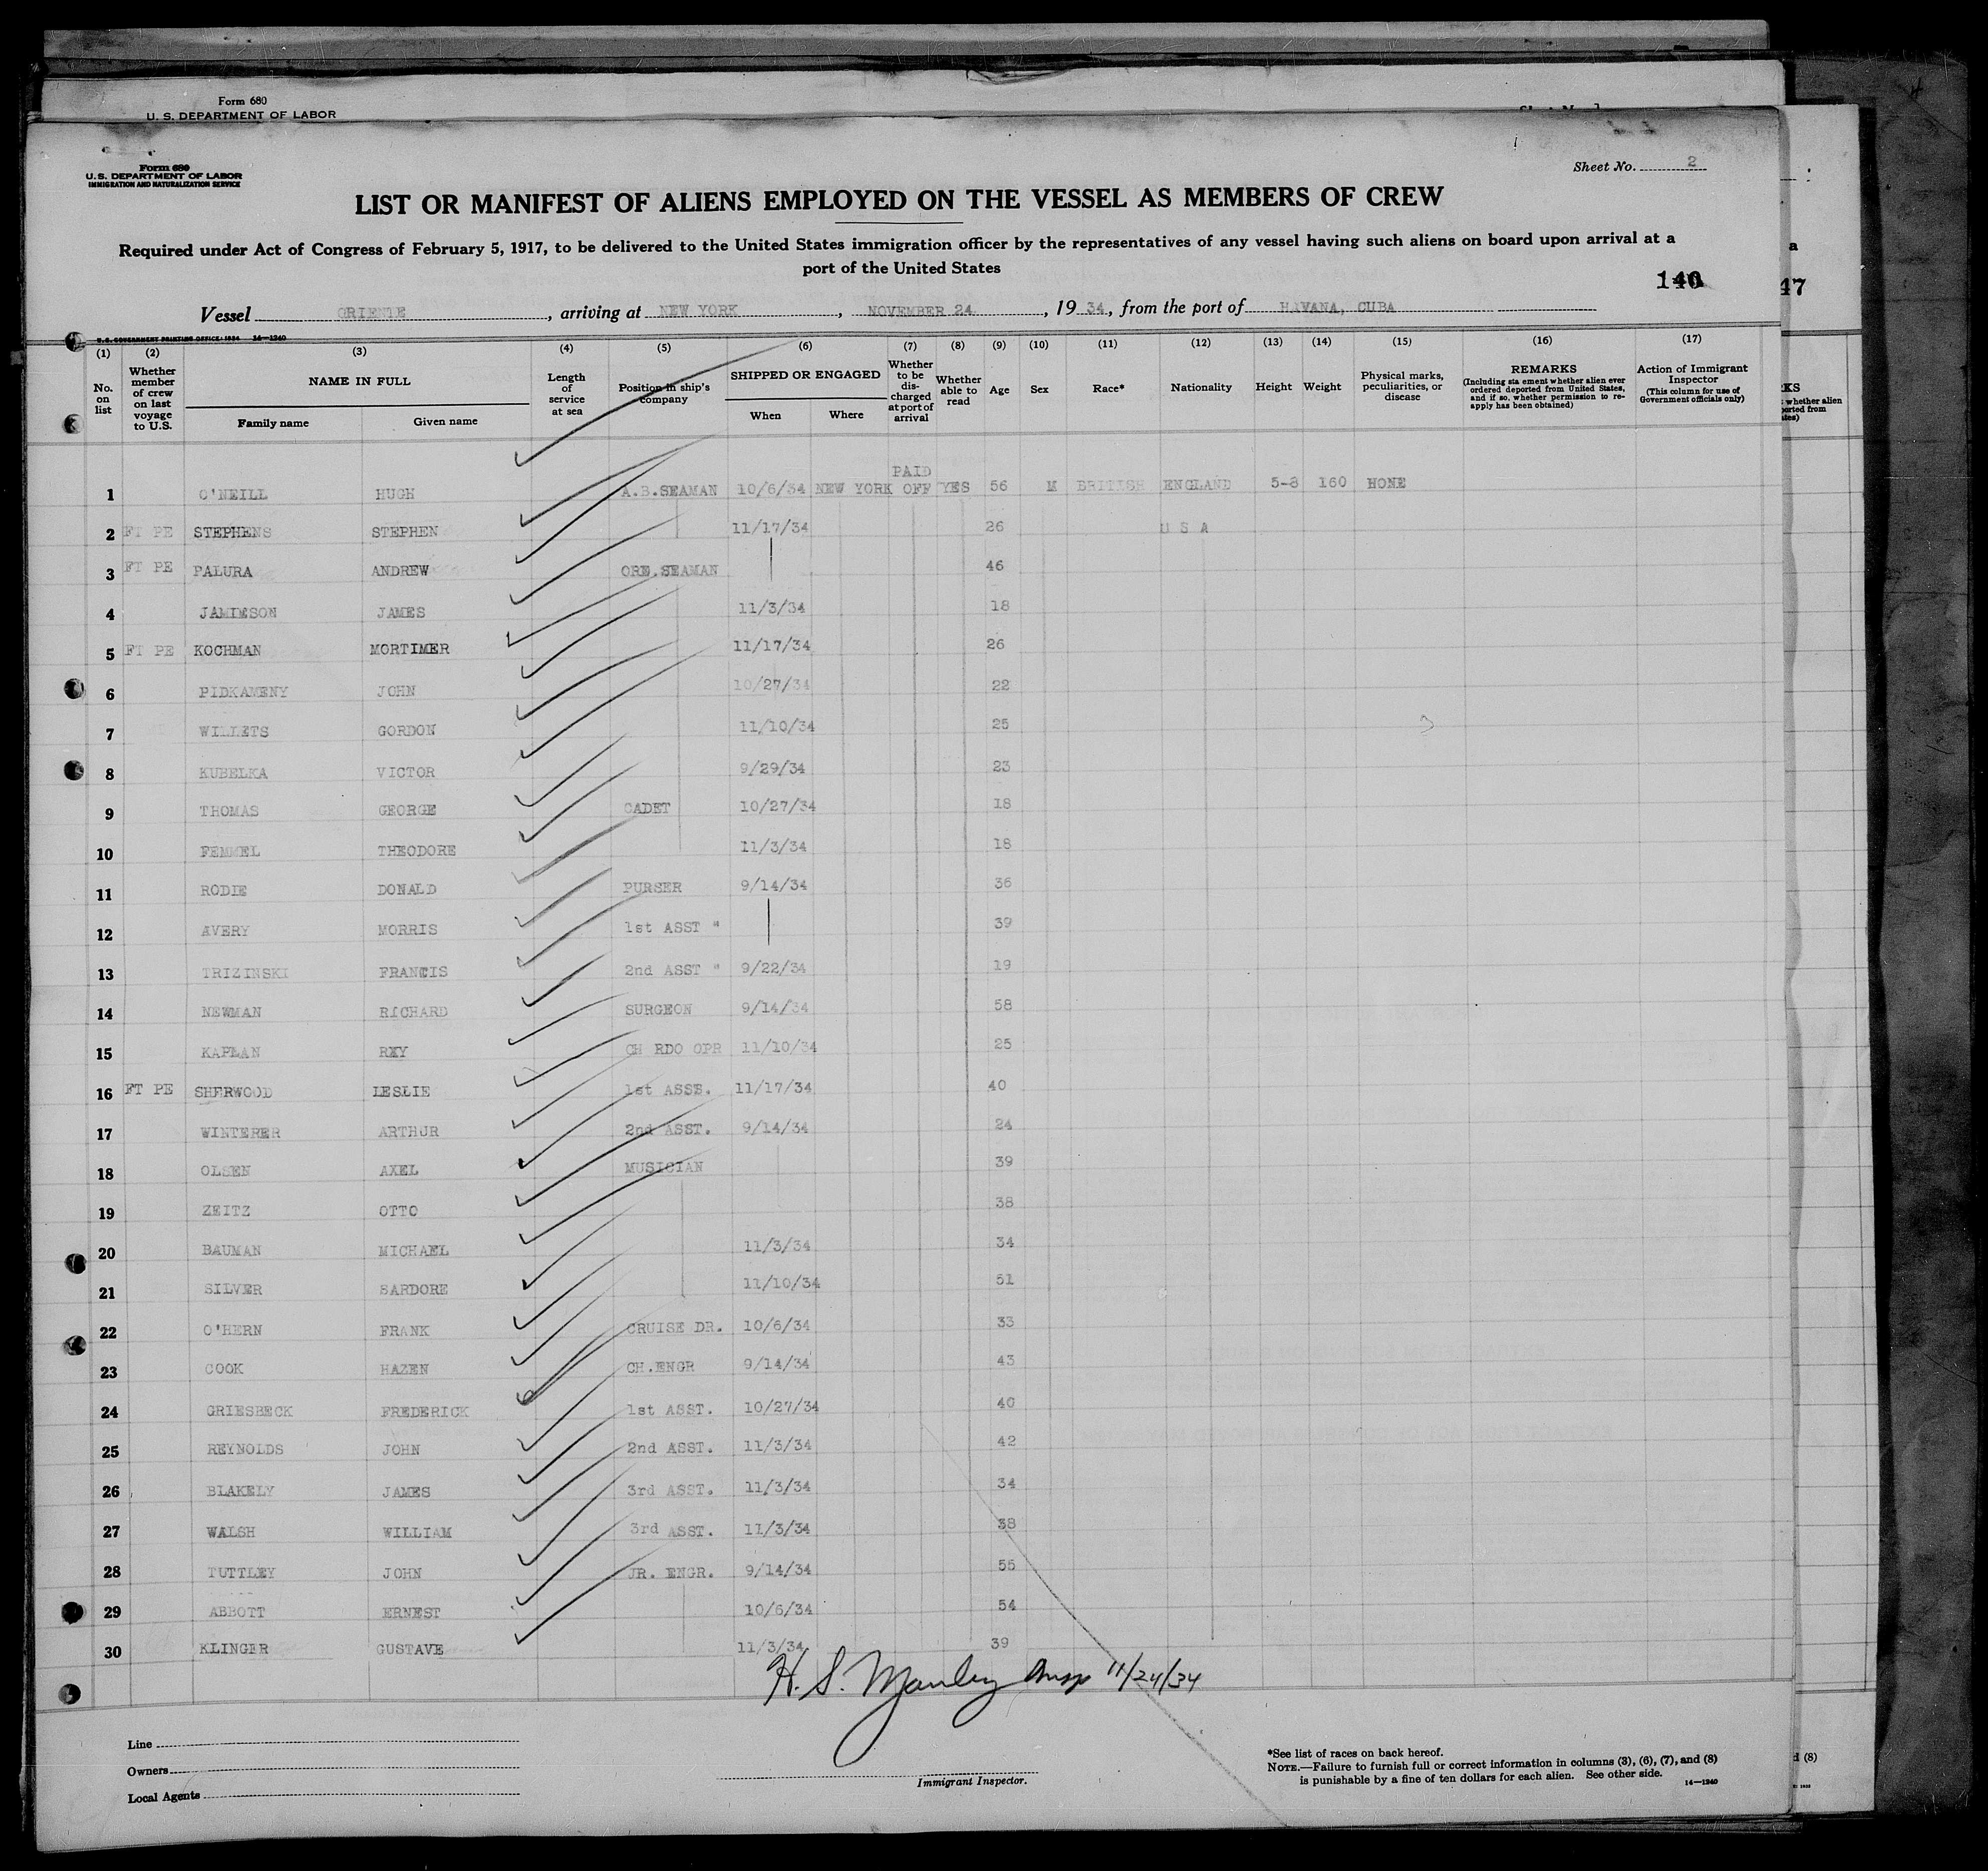 Form 680
U. S. DEPARTMENT OF LABOR
Form 680
U. S. DEPARTMENT OF LABOR
IMMIGRATION AND NATURALIZATION SERVICE
Sheet No. 2
LIST OR MANIFEST OF ALIENS EMPLOYED ON THE VESSEL AS MEMBERS OF CREW
Required under Act of Congress of February 5, 1917, to be delivered to the United States immigration officer by the representatives of any vessel having such aliens on board upon arrival at a
port of the United States
140
47
Vessel ORIENTE, arriving at NEW YORK, NOVEMBER 24, 19 34, from the port of HAVANA, CUBA
U.S. GOVERNMENT PRINTING OFFICE: 1934 14—1240
(1) (2) (3) (4) (5) (6) (7) (8) (9) (10) (11) (12) (13) (14) (15) (16) (17)
No. on list
Whether member of crew on last voyage to U.S.
NAME IN FULL
Family name
Given name
Length of service at sea
Position in ship's company
SHIPPED OR ENGAGED
When
Where
Whether to be discharged at port of arrival
Whether able to read
Age
Sex
Race*
Nationality
Height
Weight
Physical marks, peculiarities, or disease
REMARKS
(Including sta ement whether alien ever ordered deported from United States, and if so, whether permission to reapply has been obtained)
Action of Immigrant Inspector
(This column for use of Government officials only)
1 O'NEILL HUGH A.B.SEAMAN 10/6/34 NEW YORK PAID OFF YES 56 M BRITISH ENGLAND 5-8 160 HONE
2 FT PE STEPHENS STEPHEN 11/17/34 26 U S A
3 FT PE PALURA ANDREW ORE.SEAMAN 46
4 JAMIESON JAMES 11/3/34 18
5 FT PE KOCHMAN MORTIMER 11/17/34 26
6 PIDKAMENY JOHN 10/27/34 22
7 WILLETS GORDON 11/10/34 25
8 KUBELKA VICTOR 9/29/34 23
9 THOMAS GEORGE CADET 10/27/34 18
10 FEMMEL THEODORE 11/3/34 18
11 RODIE DONALD PURSER 9/14/34 36
12 AVERY MORRIS 1st ASST " 39
13 TRIZINSKI FRANCIS 2nd ASST " 9/22/34 19
14 NEWMAN RICHARD SURGEON 9/14/34 58
15 KAPLAN RXY CH RDO OPR 11/10/34 25
16 FT PE SHERWOOD LESLIE 1st ASSS. 11/17/34 40
17 WINTERER ARTHUR 2nd ASST. 9/14/34 24
18 OLSEN AXEL MUSICIAN 39
19 ZEITZ OTTO 38
20 BAUMAN MICHAEL 11/3/34 34
21 SILVER SARDORE 11/10/34 51
22 O'HERN FRANK CRUISE DR. 10/6/34 33
23 COOK HAZEN CH.ENGR 9/14/34 43
24 GRIESBECK FREDERICK 1st ASST. 10/27/34 40
25 REYNOLDS JOHN 2nd ASST. 11/3/34 42
26 BLAKELY JAMES 3rd ASST. 11/3/34 34
27 WALSH WILLIAM 3rd ASST. 11/3/34 38
28 TUTTLEY JOHN JR. ENGR. 9/14/34 55
29 ABBOTT ERNEST 10/6/34 54
30 KLINGER GUSTAVE 11/3/34 39
H. S. Manley Insp 11/24/34
Line
Owners
Local Agents
Immigrant Inspector.
*See list of races on back hereof.
NOTE.—Failure to furnish full or correct information in columns (3), (6), (7), and (8)
is punishable by a fine of ten dollars for each alien. See other side.
14—1240